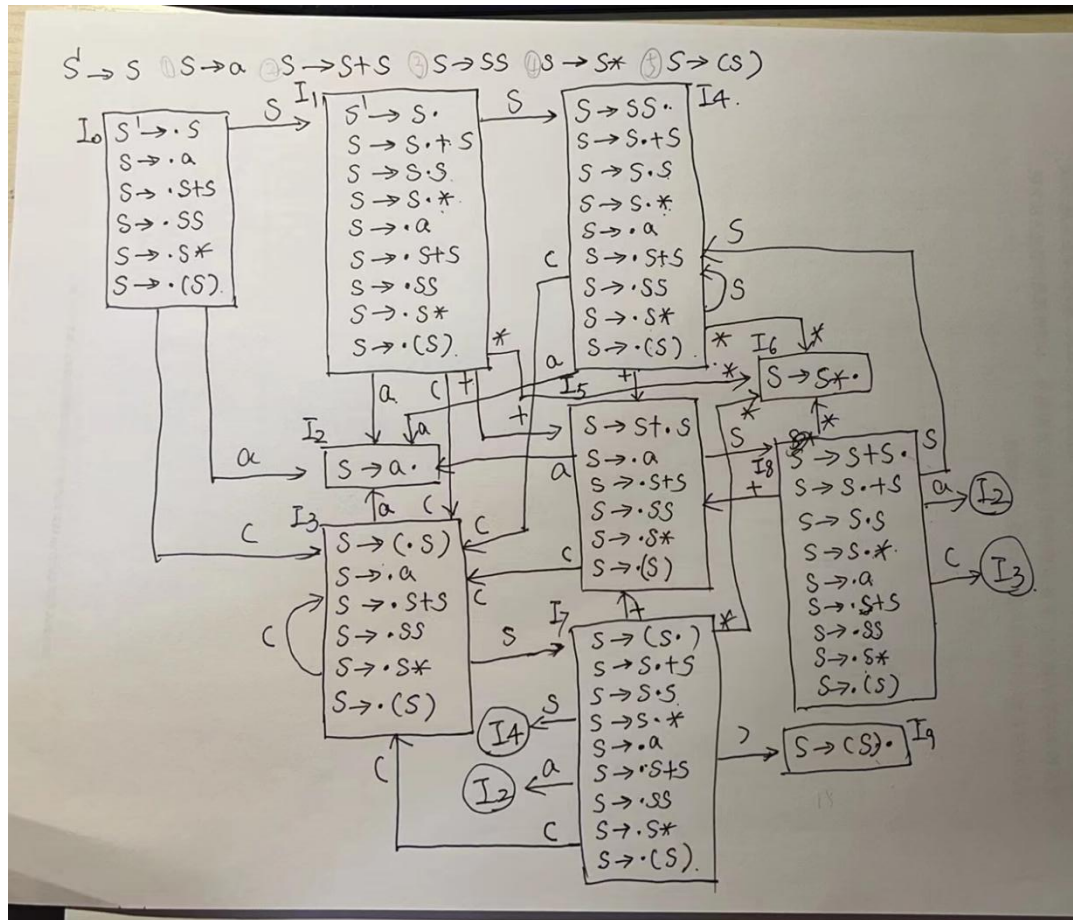 S' → S ① S → a ② S → S+S ③ S → SS ④ S → S* ⑤ S → (S)
I0
S' → ·S
S → ·a
S → ·S+S
S → ·SS
S → ·S*
S → ·(S)
S
a
(
I1
S' → S·
S → S·+S
S → S·S
S → S·*
S → ·a
S → ·S+S
S → ·SS
S → ·S*
S → ·(S)
S
a
(
+
*
I4
S → SS·
S → S·+S
S → S·S
S → S·*
S → ·a
S → ·S+S
S → ·SS
S → ·S*
S → ·(S)
(
S
S
*
*
a
+
*
+
a
I2
S → a·
a
I6
S → S*·
*
*
I5
S → S+·S
S → ·a
S → ·S+S
S → ·SS
S → ·S*
S → ·(S)
S
a
(
(
I3
S → (·S)
S → ·a
S → ·S+S
S → ·SS
S → ·S*
S → ·(S)
(
(
(
S
I8
S → S+S·
S → S·+S
S → S·S
S → S·*
S → ·a
S → ·S+S
S → ·SS
S → ·S*
S → ·(S)
+
S
a
I2
(
I3
I7
S → (S·)
S → S·+S
S → S·S
S → S·*
S → ·a
S → ·S+S
S → ·SS
S → ·S*
S → ·(S)
+
*
S
I4
a
I2
(
(
)
I9
S → (S)·